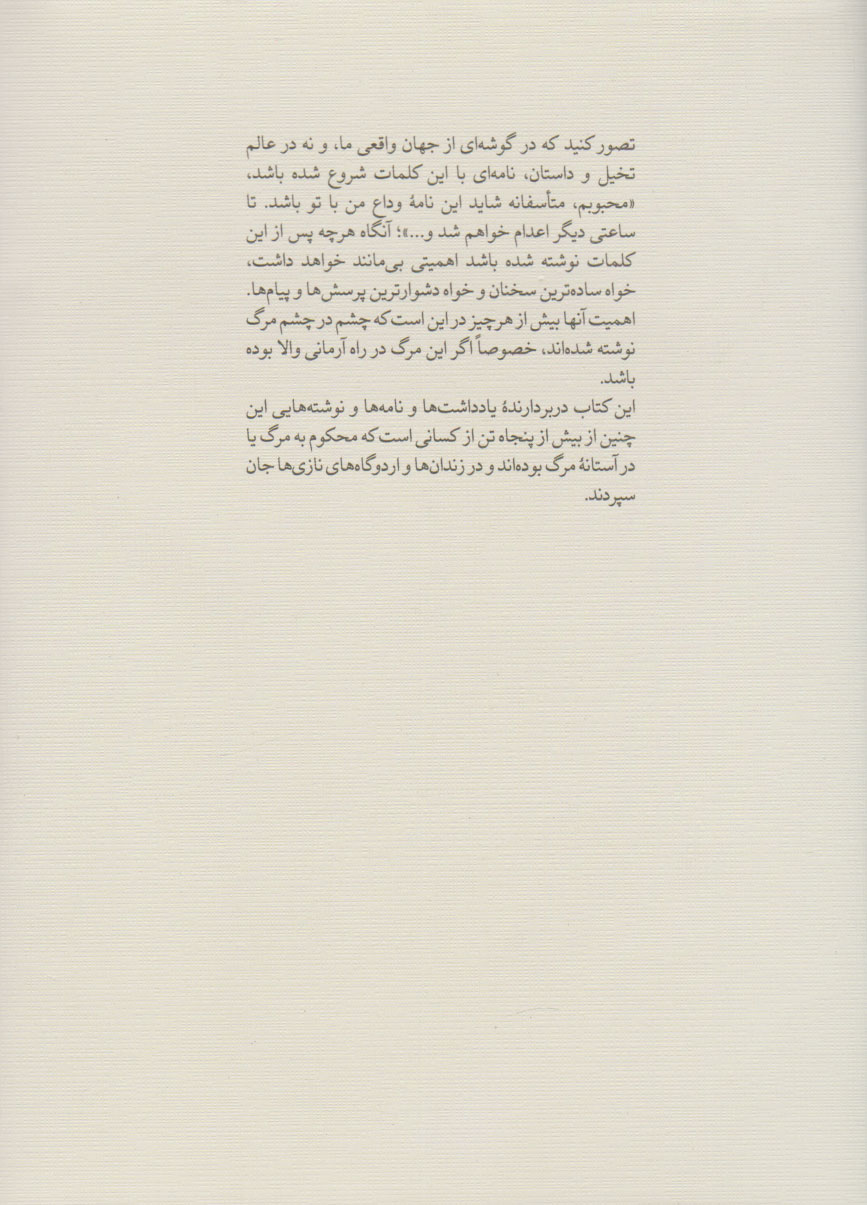 تصور کنید که در گوشه‌ای از جهان واقعی ما، و نه در عالم
تخیل و داستان، نامه‌ای با این کلمات شروع شده باشد،
«محبوبم، متأسفانه شاید این نامهٔ وداع من با تو باشد. تا
ساعتی دیگر اعدام خواهم شد و...»؛ آنگاه هرچه پس از این
کلمات نوشته شده باشد اهمیتی بی‌مانند خواهد داشت،
خواه ساده‌ترین سخنان و خواه دشوارترین پرسش‌ها و پیام‌ها.
اهمیت آنها بیش از هرچیز در این است که چشم در چشم مرگ
نوشته شده‌اند، خصوصاً اگر این مرگ در راه آرمانی والا بوده
باشد.
این کتاب دربردارندهٔ یادداشت‌ها و نامه‌ها و نوشته‌هایی این
چنین از بیش از پنجاه تن از کسانی است که محکوم به مرگ یا
در آستانهٔ مرگ بوده‌اند و در زندان‌ها و اردوگاه‌های نازی‌ها جان
سپردند.